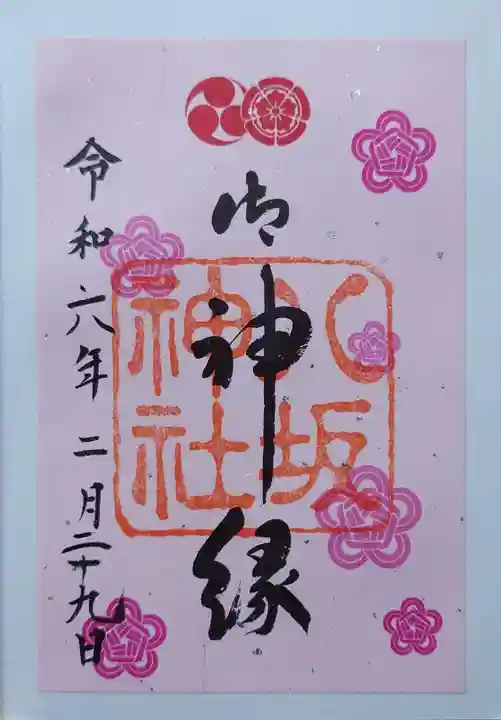 御神縁
八坂
神社
令和六年二月二十九日